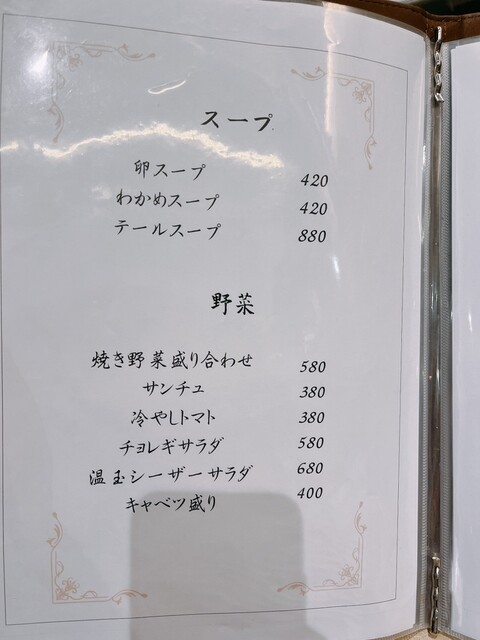 スープ
卵スープ 420
わかめスープ 420
テールスープ 880
野菜
焼き野菜盛り合わせ 580
サンチュ 380
冷やしトマト 380
チョレギサラダ 580
温玉シーザーサラダ 680
キャベツ盛り 400